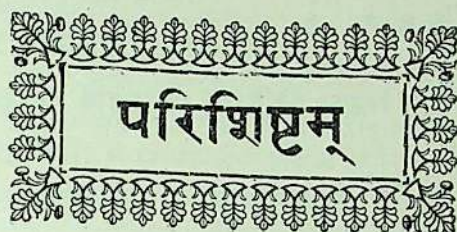 परिशिष्टम्